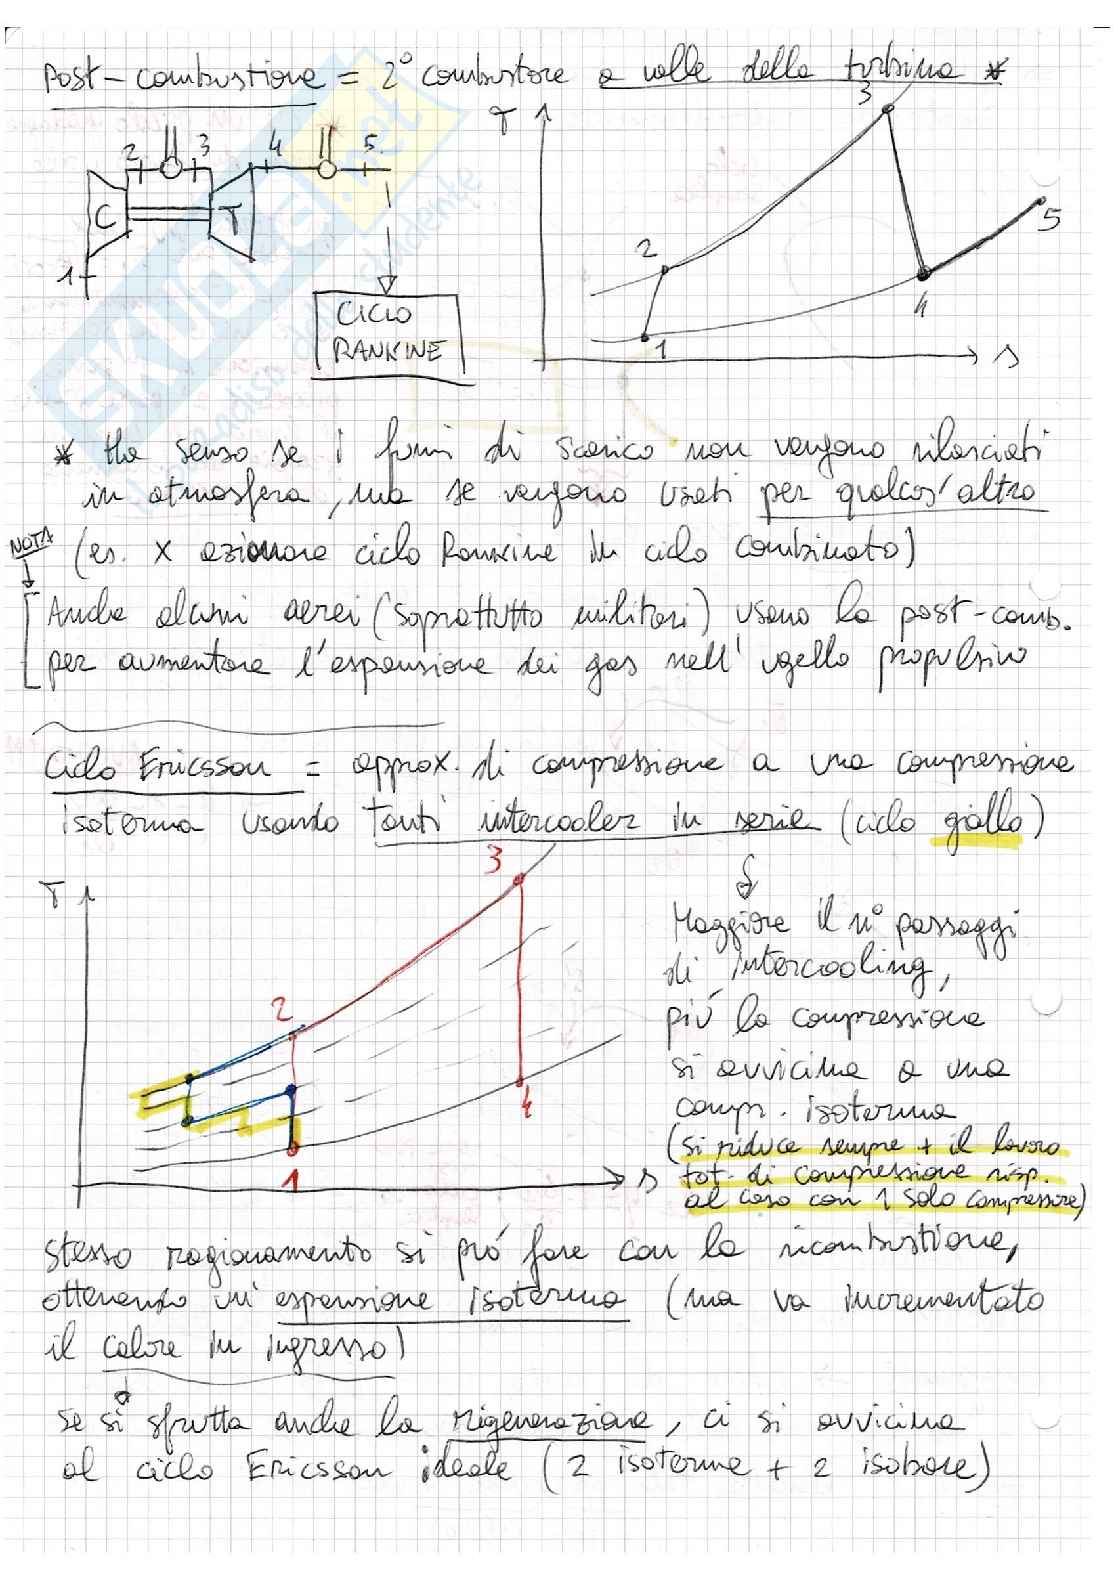 Post-combustione = 2° combustore a valle della turbina *
2 3 4 5
C T
1
CICLO
RANKINE
T 3
2 5
4
1 s
* Ha senso se i fumi di scarico non vengono rilasciati
in atmosfera, ma se vengono usati per qualcos'altro
NOTA (es. x azionare ciclo Rankine in ciclo combinato)
Anche alcuni aerei (soprattutto militari) usano la post-comb.
per aumentare l'espansione dei gas nell'ugello propulsivo
Ciclo Ericsson = approx. di compressione a una compressione
isoterma usando tanti intercooler in serie (ciclo giallo)
T 3
2
4
1 s
Maggiore il n° passaggi
di intercooling,
più la compressione
si avvicina a una
compr. isoterma
(si riduce sempre + il lavoro
tot. di compressione risp.
al caso con 1 solo compressore)
Stesso ragionamento si può fare con la ricombustione,
ottenendo un'espansione isoterma (ma va incrementato
il calore in ingresso)
Se si sfrutta anche la rigenerazione, ci si avvicina
al ciclo Ericsson ideale (2 isoterme + 2 isobare)
SKUOLA.net